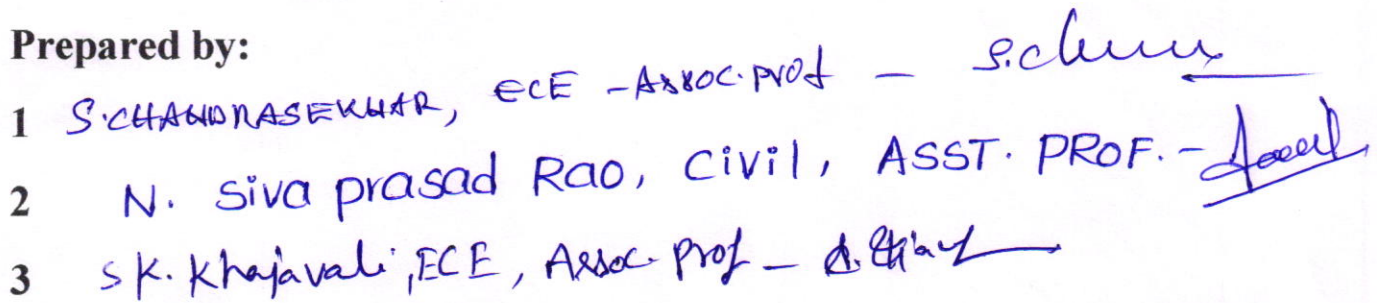 Prepared by:
1 S.CHANDRASEKHAR, ECE - Assoc. Prof -
2 N. Siva prasad Rao, Civil, ASST. PROF. -
3 SK. Khajavali, ECE, Assoc. Prof -